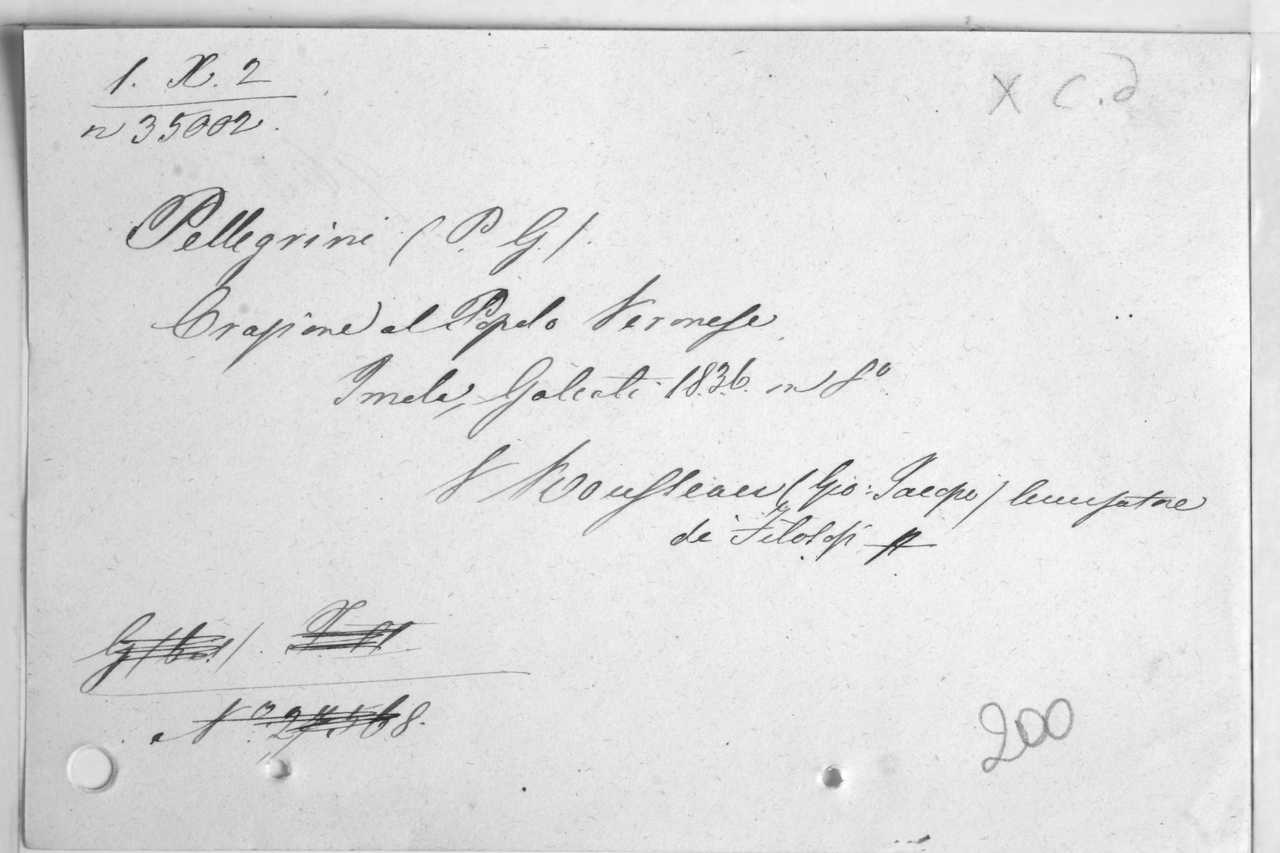 1. X. 2
n 35002.
X C.d
Pellegrini (P. G.)
Orazione al Popolo Veronese
Imola, Galeati 1836. in 8º
V Rousseau (Gio: Jacopo) Accusatore
de' Filosofi
200